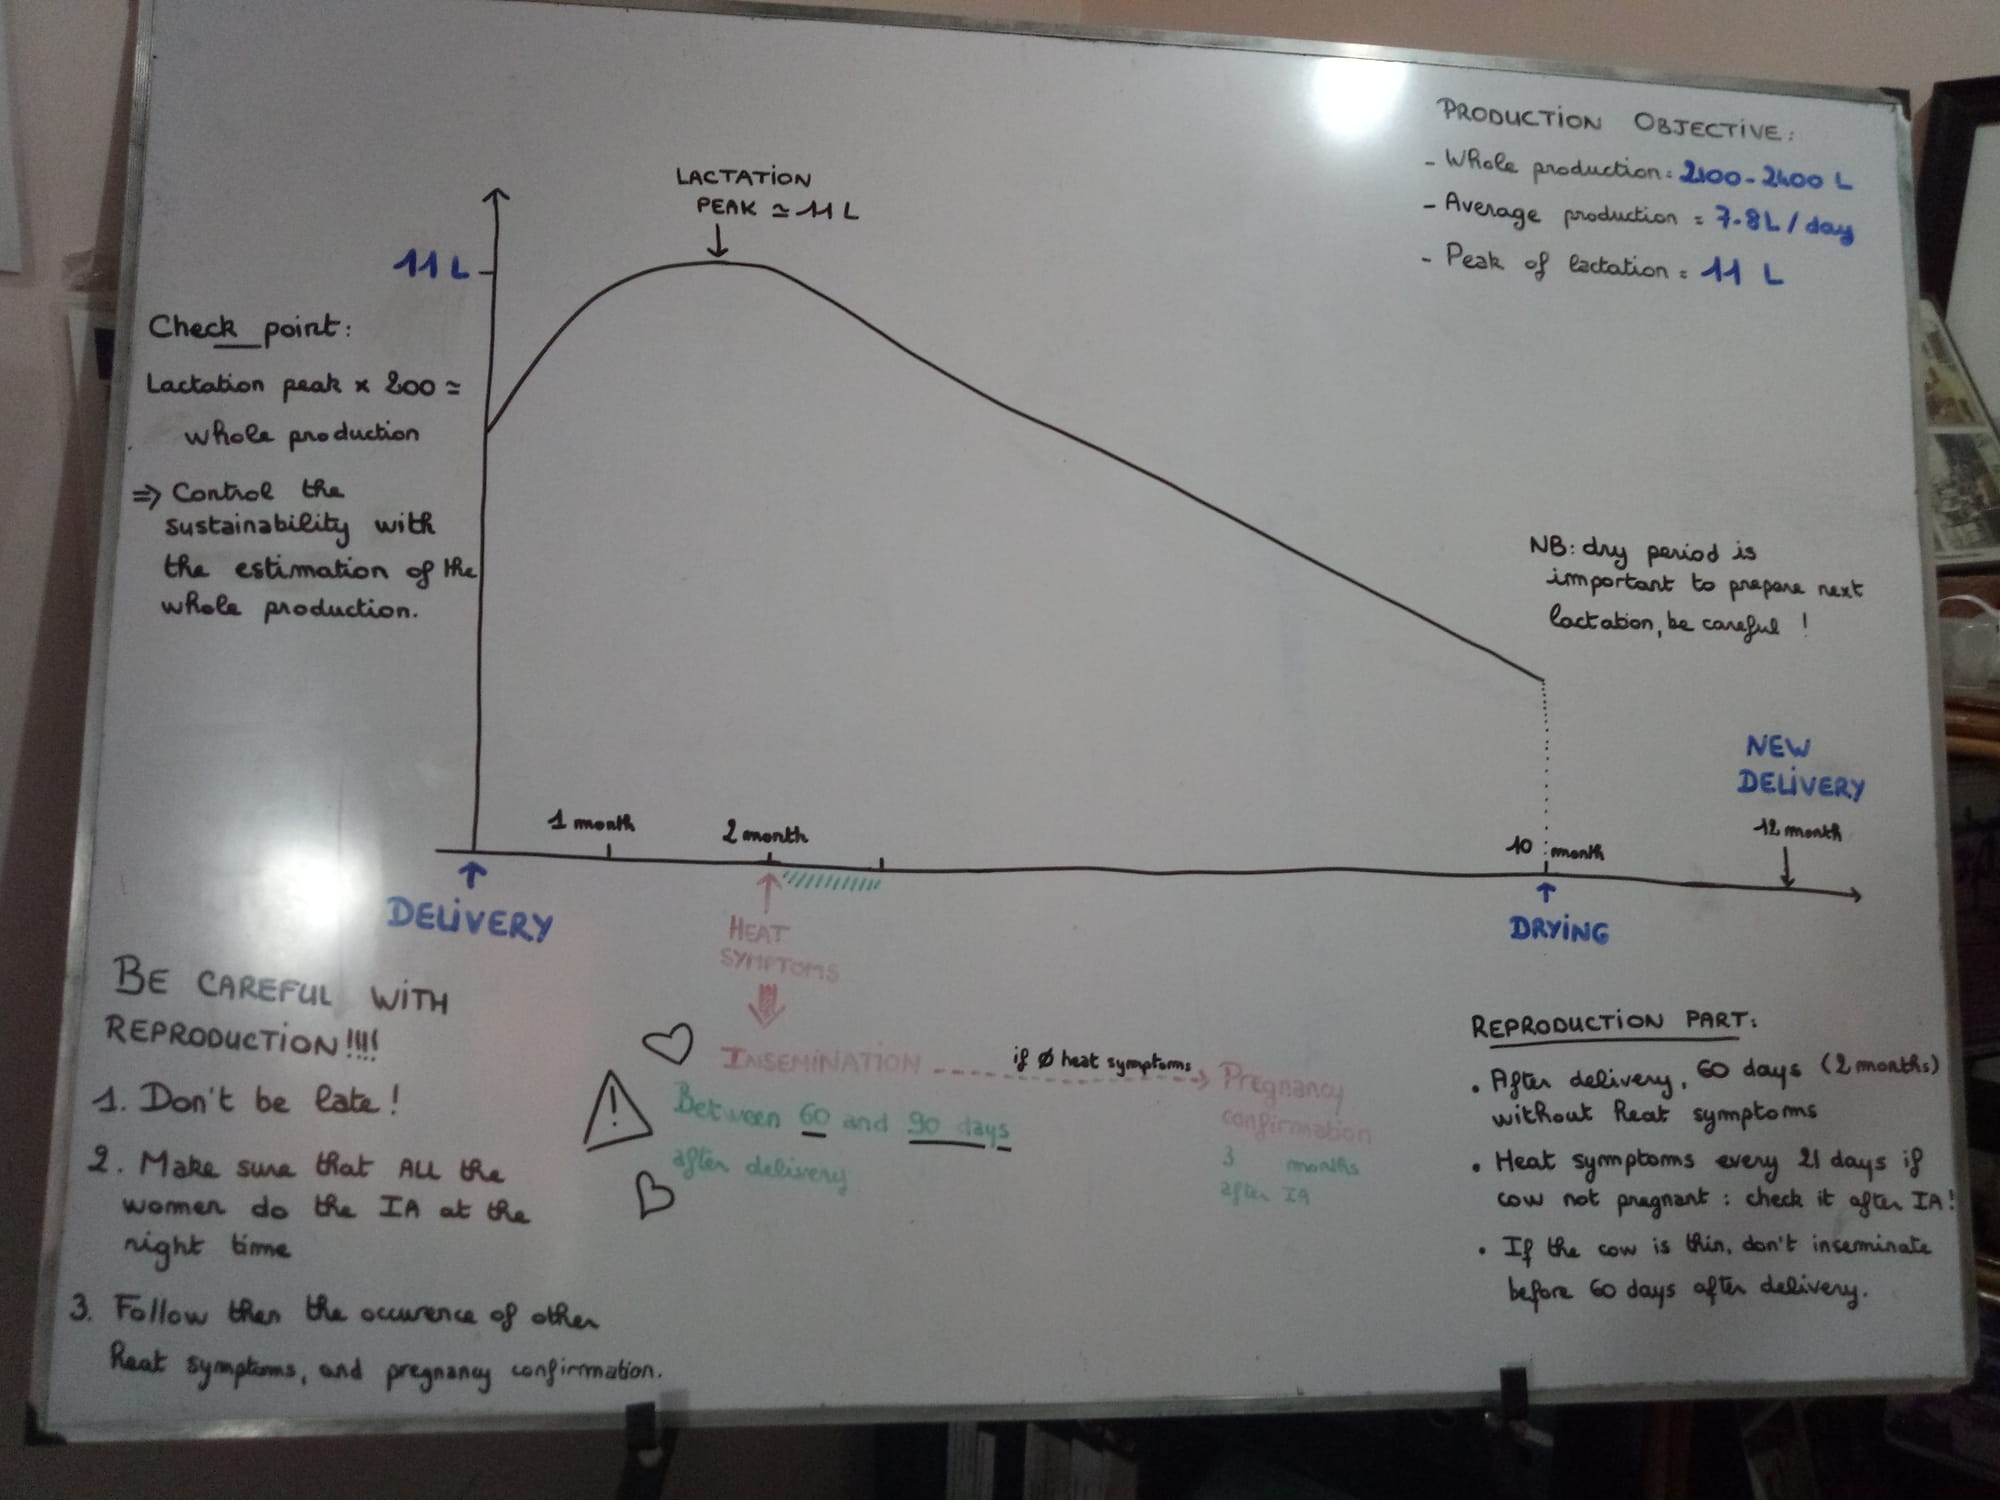 PRODUCTION OBJECTIVE:
- Whole production = 2100-2400 L
- Average production = 7-8L / day
- Peak of lactation = 11 L
LACTATION
PEAK ≃ 11 L
11 L
Check point:
Lactation peak x 200 ≃
whole production
⇒ Control the
sustainability with
the estimation of the
whole production.
NB: dry period is
important to prepare next
lactation, be careful !
NEW
DELIVERY
12 month
1 month
2 month
10 month
DELIVERY
HEAT
SYMPTOMS
DRYING
INSEMINATION
if Ø heat symptoms
Pregnancy
confirmation
3 months
after IA
Between 60 and 90 days
after delivery
BE CAREFUL WITH
REPRODUCTION!!!!
1. Don't be late !
2. Make sure that ALL the
women do the IA at the
right time
3. Follow then the occurence of other
heat symptoms, and pregnancy confirmation.
REPRODUCTION PART:
• After delivery, 60 days (2 months)
without heat symptoms
• Heat symptoms every 21 days if
cow not pregnant : check it after IA!
• If the cow is thin, don't inseminate
before 60 days after delivery.